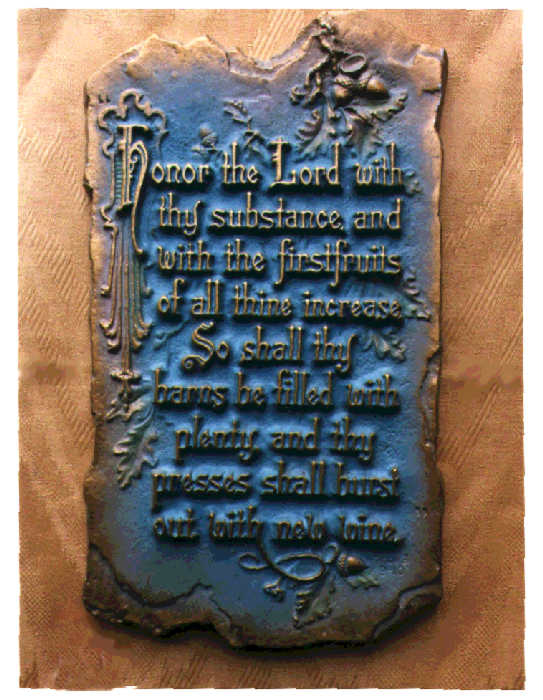 Honor the Lord with
thy substance, and
with the firstfruits
of all thine increase.
So shall thy
barns be filled with
plenty, and thy
presses shall burst
out with new wine.